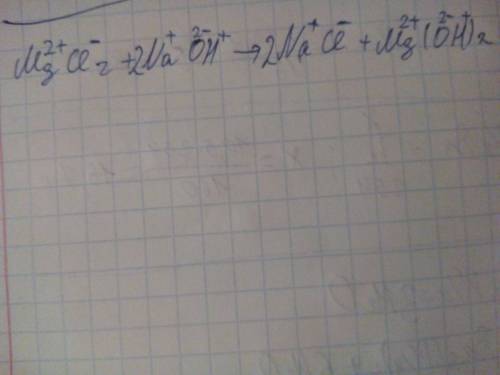 Mg²⁺Cl⁻₂ + 2Na⁺O²⁻H⁺ → 2Na⁺Cl⁻ + Mg²⁺(O²⁻H⁺)₂